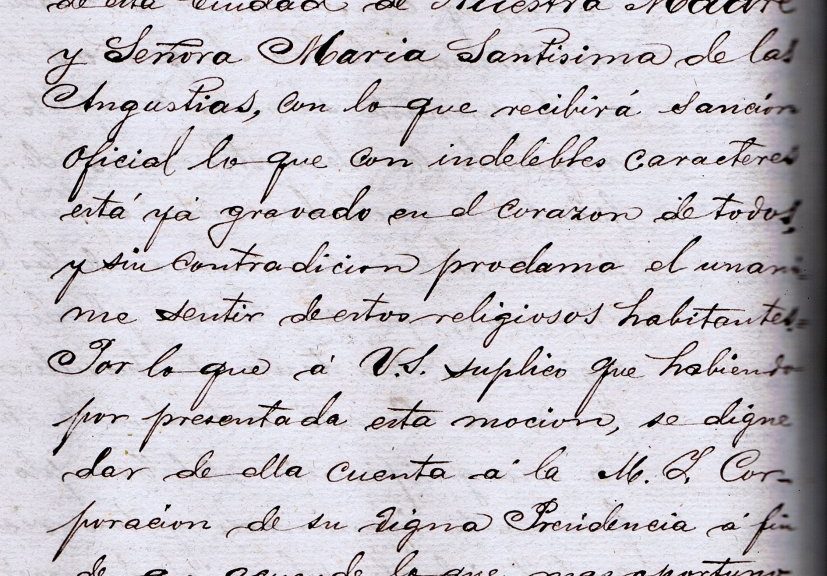 de esta Ciudad de Nuestra Madre
y Señora Maria Santisima de las
Angustias, con lo que recibirá sanción
oficial lo que con indelebles caracteres
está yá gravado en el corazon de todos,
y sin contradicion proclama el unani-
me sentir de estos religiosos habitantes.=
Por lo que á V.S. suplico que habiendo
por presentada esta mocion, se digne
dar de ella cuenta á la M. I. Cor-
poracion de su digna Presidencia á fin
de q. acuerde lo que mas oportuno